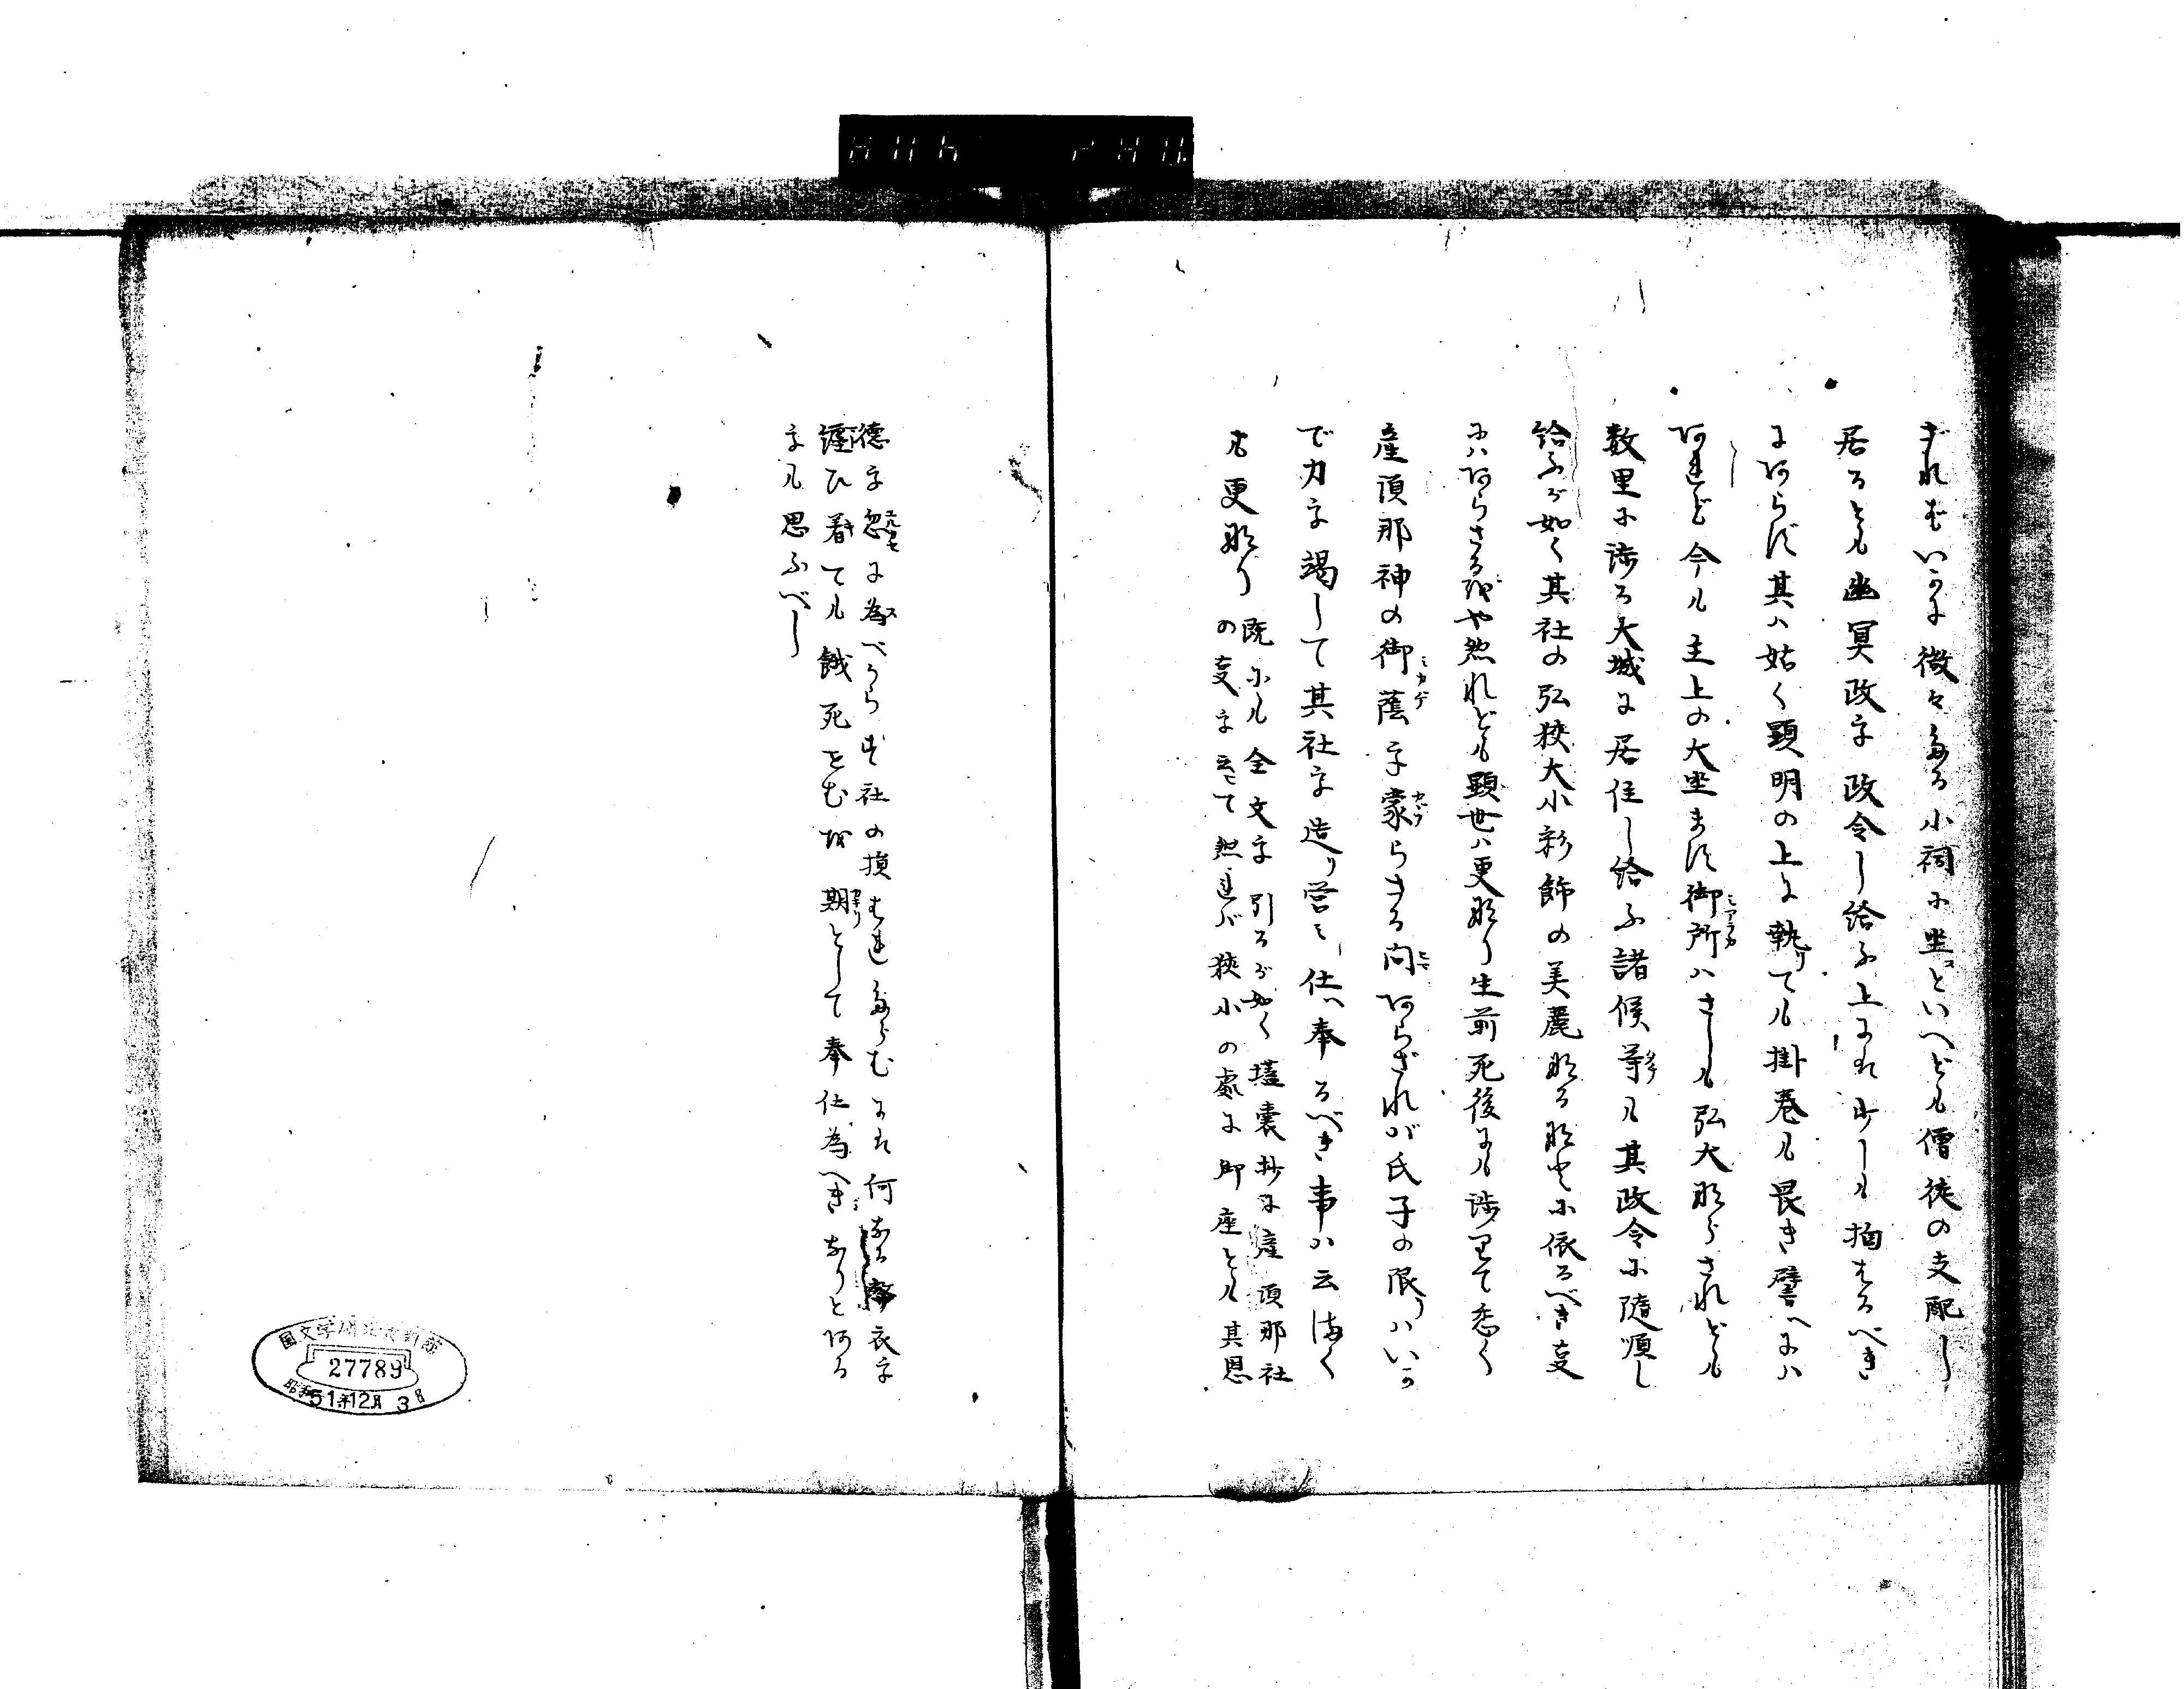 ざればいかに微々たる小祠に坐スといへども僧徒の支配し
居るとも幽冥政を政令し給ふ上にれ少しも拘はるべき
にあらず其ハ姑く顕明の上に執リても掛巻も畏き譬へにハ
あれど今も主上の大坐ます御所ミアラカハさしも弘大ならされども
数里に渉る大城に居住し給ふ諸侯等ラチも其政令に随順し
給ふが如く其社の弘狭大小彩飾の美麗なるなどに依るべき事
にハあらさるをや然れども顕世ハ更なり生前死後にも渉りて悉く
産須那神の御蔭ミカゲを蒙カヽフらざる間ヒマあらざれバ氏子の限りハいか
で力を竭して其社を造り営ミ仕へ奉るべき事ハ云まく
も更なり
既にも全文を引るが如く壒嚢抄に産須那社
の事を云て然れバ狭小の處に御座とも其恩
徳を忽ユルカセに為スべからず社の損はれたらむにれ何なる弊衣を
纏ひ着ても餓死せむを期カギリとして奉仕為べきなりとある
をも思ふべし
国文学研究資料館
27789
昭和51年12月3日